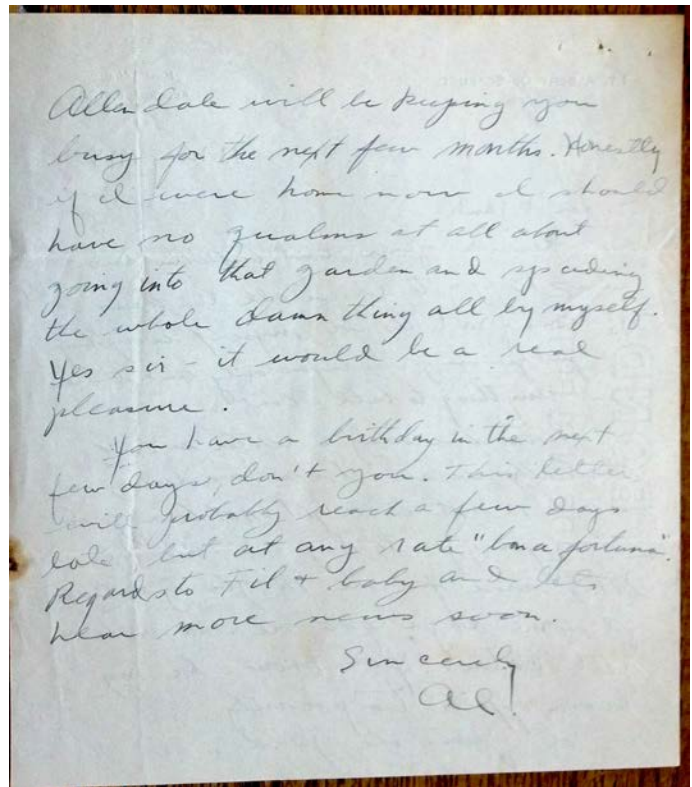 Allendale will be keeping you
busy for the next few months. Honestly
if I were home now I should
have no qualms at all about
going into that garden and spading
the whole damn thing all by myself.
Yes sir - it would be a real
pleasure.
You have a birthday in the next
few days, don't you. This letter
will probably reach a few days
late but at any rate "bona fortuna".
Regards to Fil + baby and lets
hear more news soon.
Sincerely
Al.